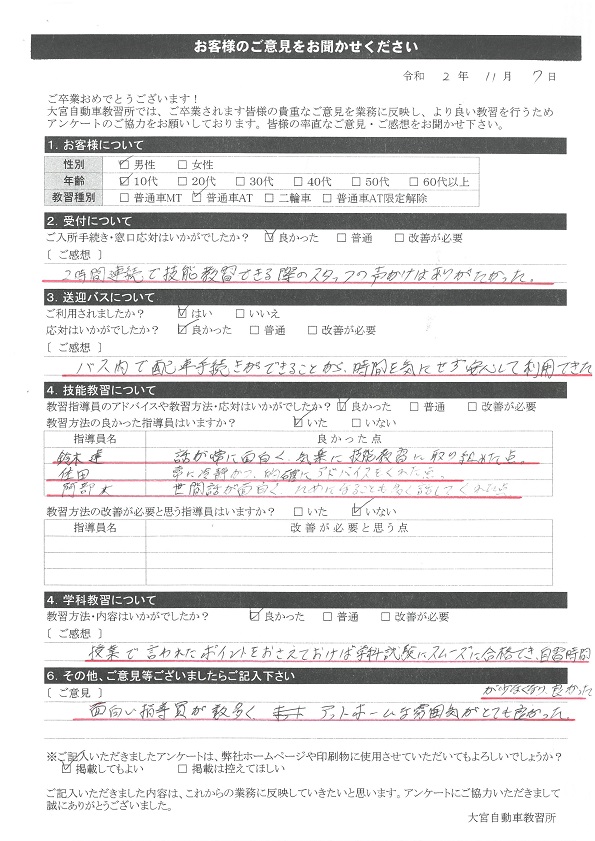 お客様のご意見をお聞かせください
令和 2 年 11 月 7 日
ご卒業おめでとうございます！
大宮自動車教習所では、ご卒業されます皆様の貴重なご意見を業務に反映し、より良い教習を行うため
アンケートのご協力をお願いしております。皆様の率直なご意見・ご感想をお聞かせ下さい。
1. お客様について
性別 ☑男性 □女性
年齢 ☑10代 □20代 □30代 □40代 □50代 □60代以上
教習種別 □普通車MT ☑普通車AT □二輪車 □普通車AT限定解除
2. 受付について
ご入所手続き・窓口応対はいかがでしたか？ ☑良かった □普通 □改善が必要
［ ご感想 ］
2時間連続で技能教習できる際のスタッフの声かけはありがたかった。
3. 送迎バスについて
ご利用されましたか？ ☑はい □いいえ
応対はいかがでしたか？ ☑良かった □普通 □改善が必要
［ ご感想 ］
バス内で配車手続きができることから、時間を気にせず安心して利用できた
4. 技能教習について
教習指導員のアドバイスや教習方法・応対はいかがでしたか？ ☑良かった □普通 □改善が必要
教習方法の良かった指導員はいますか？ ☑いた □いない
指導員名 良かった点
鈴木 話が常に面白く、気楽に技能教習に取り組めた点。
佐田 常に冷静かつ、的確にアドバイスをくれた点。
阿部 世間話が面白く、ためになることも多く話してくれた点
教習方法の改善が必要と思う指導員はいますか？ □いた ☑いない
指導員名 改善が必要と思う点
4. 学科教習について
教習方法・内容はいかがでしたか？ ☑良かった □普通 □改善が必要
［ ご感想 ］
授業で言われたポイントをおさえておけば学科試験にスムーズに合格でき、自習時間
が少なくなり、良かった
6. その他、ご意見等ございましたらご記入下さい
［ ご意見 ］
面白い指導員が数多く、アットホームな雰囲気がとても良かった。
※ご記入いただきましたアンケートは、弊社ホームページや印刷物に使用させていただいてもよろしいでしょうか？
☑掲載してもよい □掲載は控えてほしい
ご記入いただきました内容は、これからの業務に反映していきたいと思います。アンケートにご協力いただきまして
誠にありがとうございました。
大宮自動車教習所